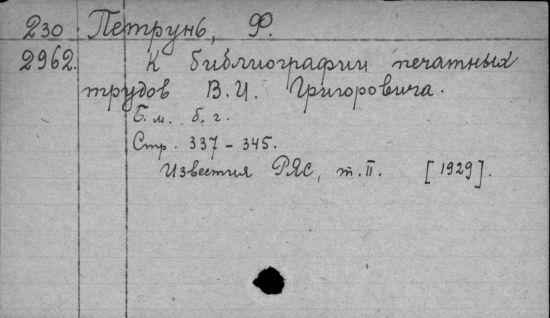 230 Петрунь, Ф.
2962. К библиографии печатных
трудов В.И. Григоровича.
Б. м. б. г.
Стр. 337 - 345.
Известия РЯС, т. II. [1929].